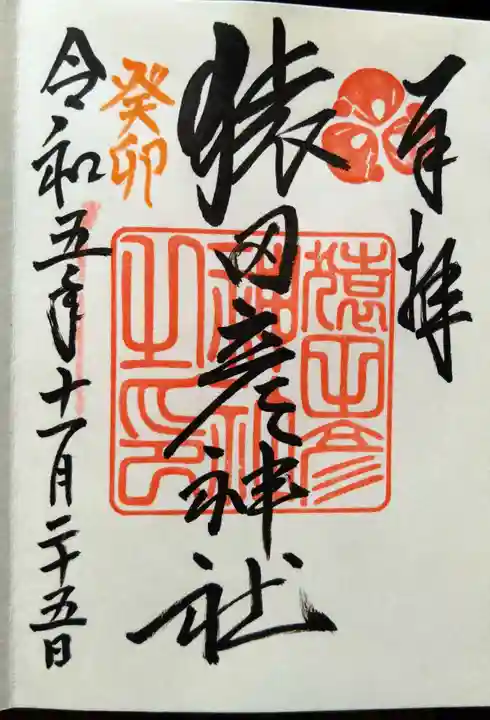 奉拝
猿田彦神社
猿田彦
神社
之印
癸卯
令和五年十一月二十五日